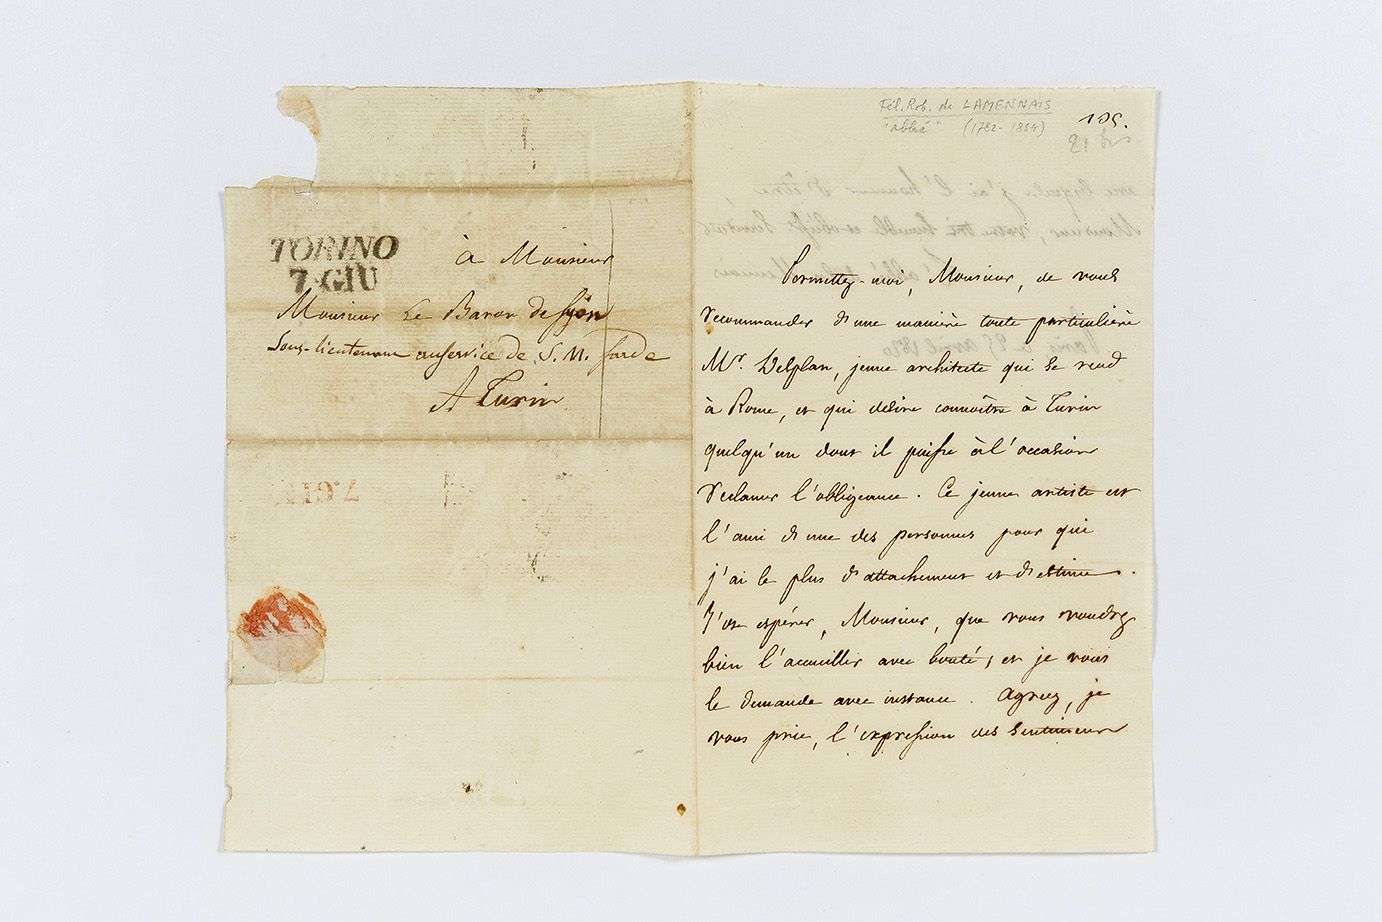 TORINO
7. GIU
à Monsieur
Monsieur Le Baron de
Sous-lieutenant au service de S. M. Sarde
A Turin
7. GIU
Fél. Rob. de LAMENNAIS
"abbé" (1782-1854)
105.
21 bis
Permettez-moi, Monsieur, de vous
recommander d'une manière toute particulière
Mr. Delplan, jeune architecte qui se rend
à Rome, et qui désire connoître à Turin
quelqu'un dont il puisse à l'occasion
réclamer l'obligeance. Ce jeune artiste est
l'ami d'une des personnes pour qui
j'ai le plus d'attachement et d'estime.
J'ose espérer, Monsieur, que vous voudrez
bien l'accueillir avec bonté, et je vous
le demande avec instance. Agréez, je
vous prie, l'expression des sentimens
avec lesquels j'ai l'honneur d'être
Monsieur, votre très humble et obéisst serviteur
Paris 25 avril 1820